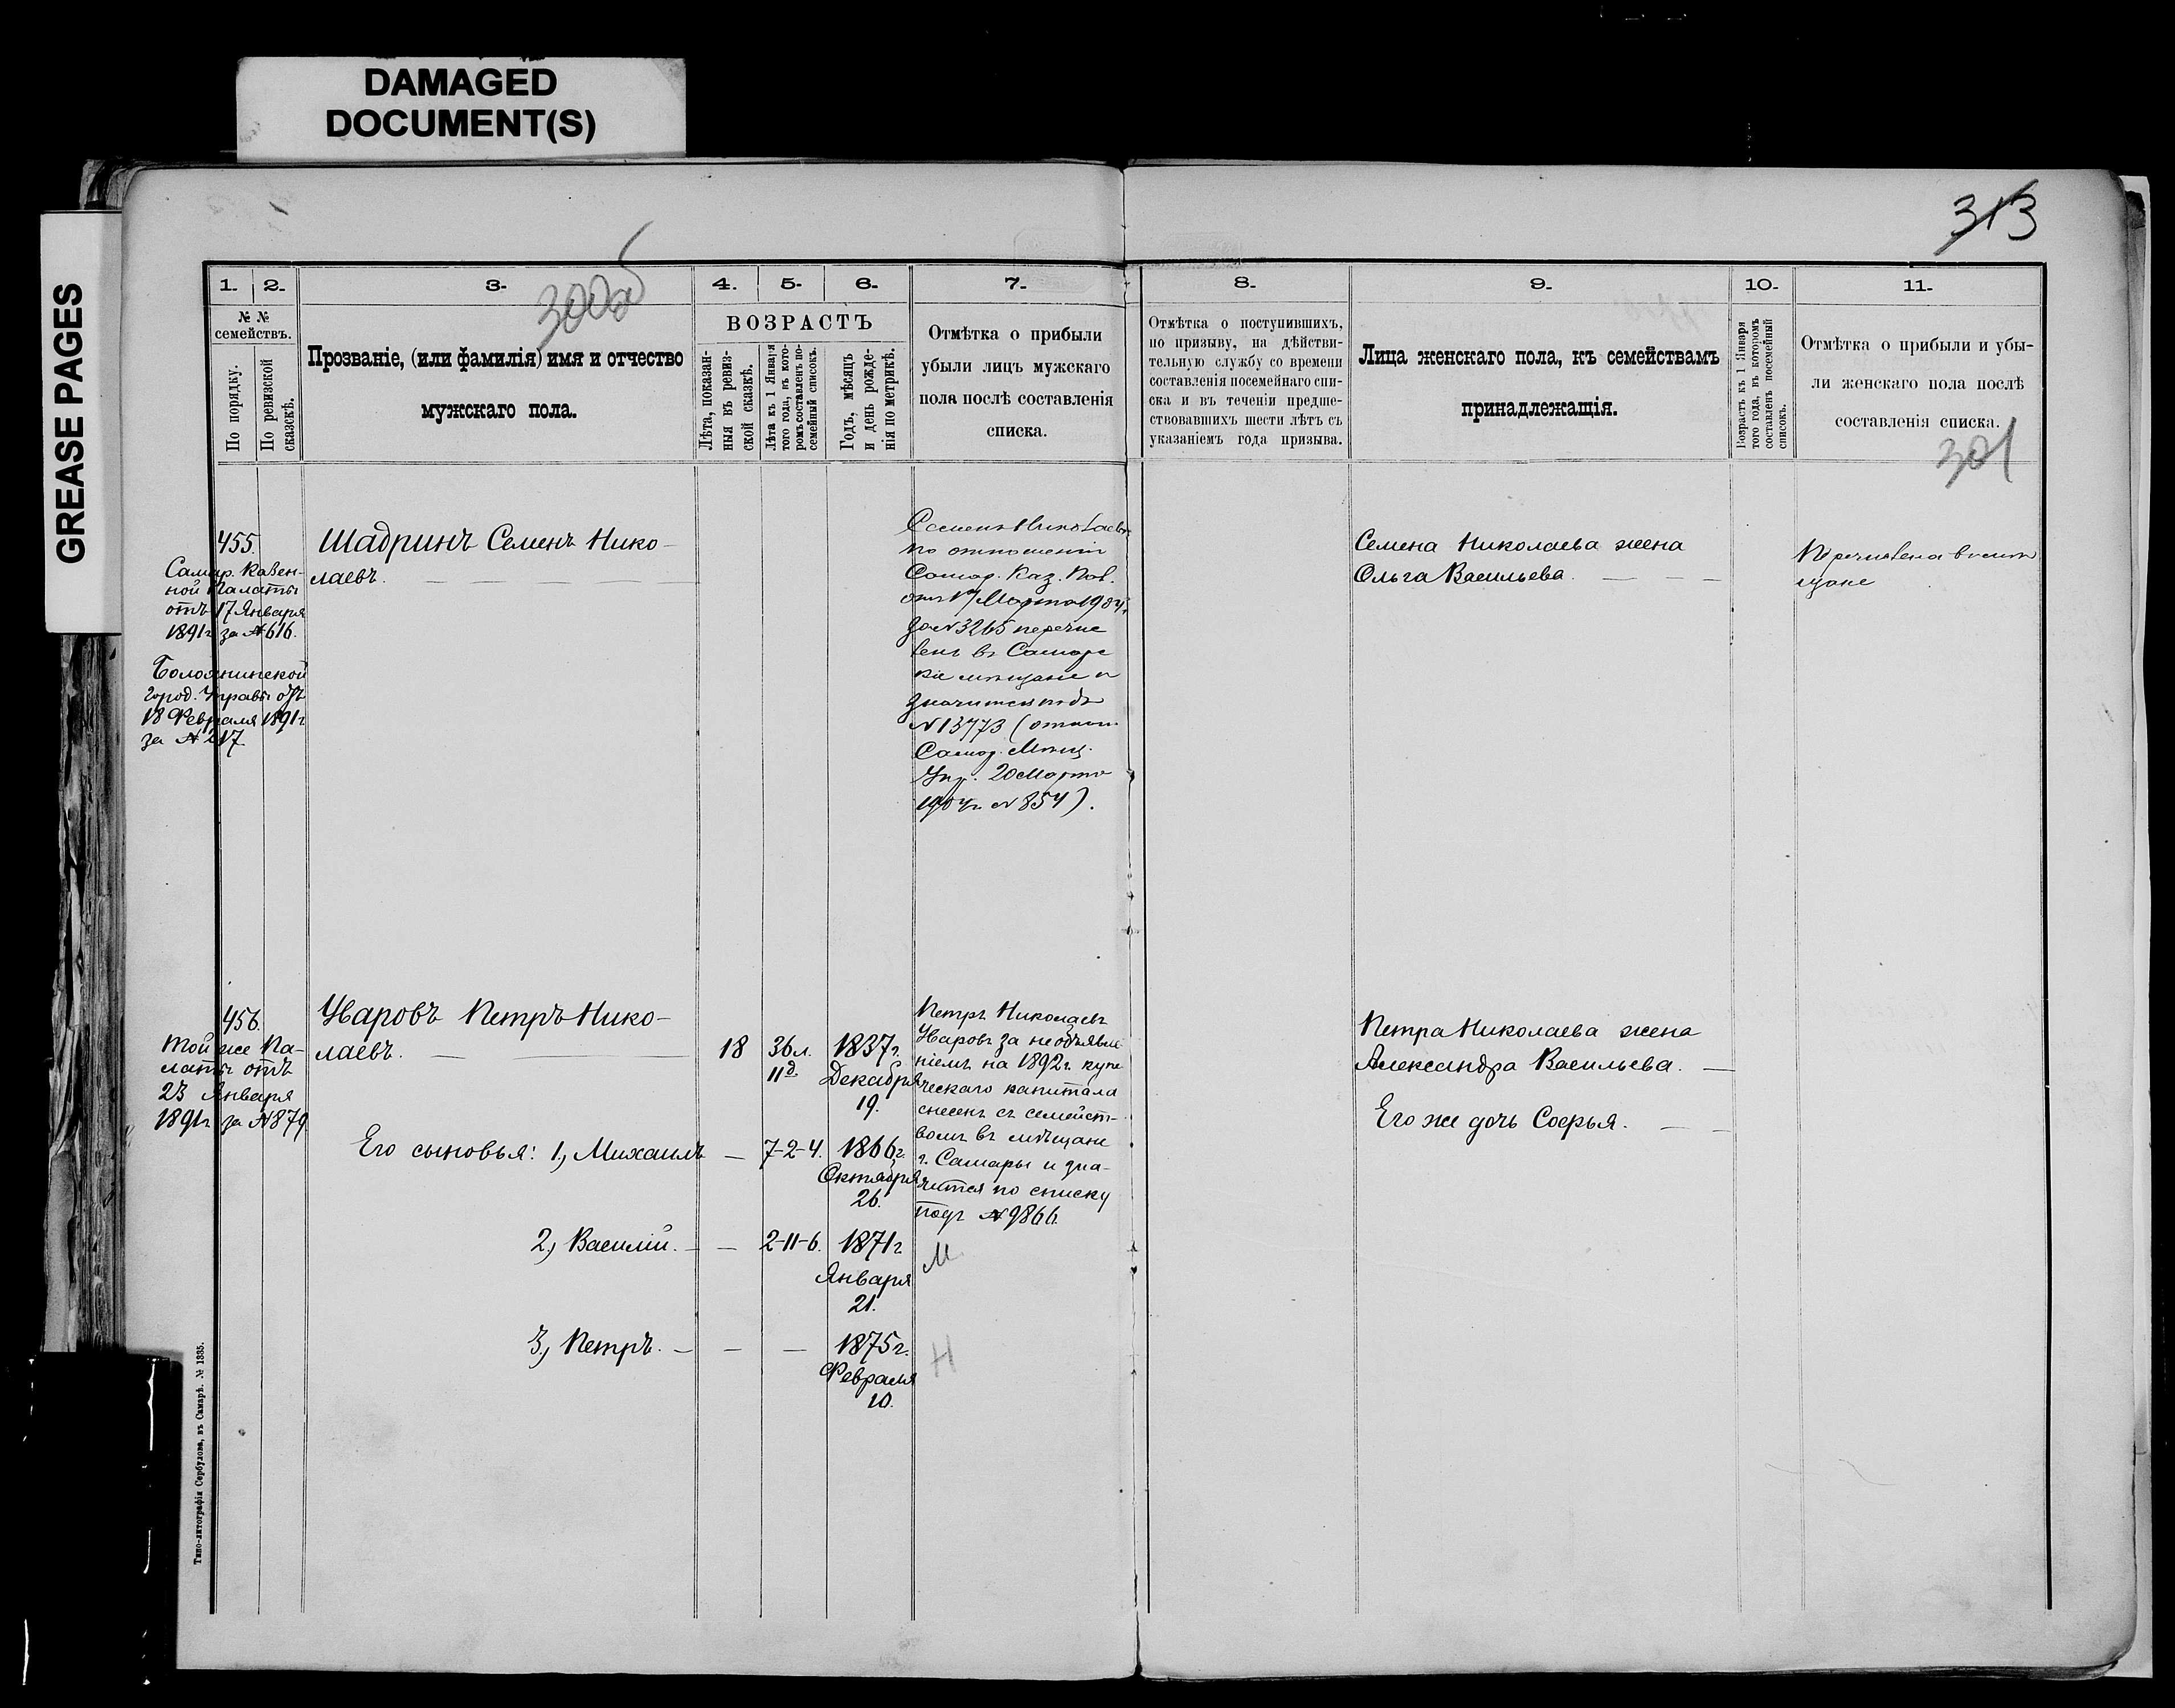 DAMAGED
DOCUMENT(S)
GREASE PAGES
313
300об
1.
2.
3.
4.
5.
6.
7.
8.
9.
10.
11.
№ №
семействъ.
По порядку.
По ревизской
сказкѣ.
Прозваніе, (или фамилія) имя и отчество
мужскаго пола.
ВОЗРАСТЪ
Лѣта, показан-
ныя въ ревиз-
ской сказкѣ.
Лѣта къ 1 Января
того года, въ кото-
ромъ составленъ по-
семейный списокъ.
Годъ, мѣсяцъ
и день рожде-
нія по метрикѣ.
Отмѣтка о прибыли
убыли лицъ мужскаго
пола послѣ составленія
списка.
Отмѣтка о поступившихъ,
по призыву, на дѣйстви-
тельную службу со времени
составленія посемейнаго спи-
ска и въ теченіи предше-
ствовавшихъ шести лѣтъ съ
указаніемъ года призыва.
Лица женскаго пола, къ семействамъ
принадлежащія.
Возрастъ къ 1 Января
того года, въ которомъ
составленъ посемейный
списокъ.
Отмѣтка о прибыли и убы-
ли женскаго пола послѣ
составленія списка.
301
455.
Самар. Казен-
ной Палаты
отъ 17 Января
1891г за № 616.
город. Управы отъ
18 Февраля 1891г
за № 217.
Шадринъ Семенъ Нико-
лаевъ.
Семенъ Николаевъ
по отношенію
Самар. Каз. Пал.
отъ 17 Марта 1904г.
за № 3265 перечис
ленъ въ Самарс
кіе мѣщане и
значится подъ
№ 13773 (отнош
Самар. Мѣщ.
Упр. 20 Марта
1904г. № 854).
Семена Николаева жена
Ольга Васильева.
Перечислена в мѣ
щане
456.
Той же Па-
латы отъ
23 Января
1891г за № 879
Уваровъ Петръ Нико-
лаевъ.
18
36 л.
11 д.
1837г.
Декабря
19.
Петръ Николаевъ
Уваровъ за необъявле
ніемъ на 1892г. купе
ческаго капитала
снесенъ съ семейст-
вомъ въ мѣщане
г. Самары и зна-
чится по списку
подъ № 9866.
Его сыновья: 1, Михаилъ
7-2-4.
1866г.
Октября
26.
2, Василій.
2-11-6.
1871г
Января
21.
М
3, Петръ.
1875г.
Февраля
10.
Н
Петра Николаева жена
Александра Васильева.
Его же дочь Софья.
Типо-литографія Сербулова, въ Самарѣ. № 1335.